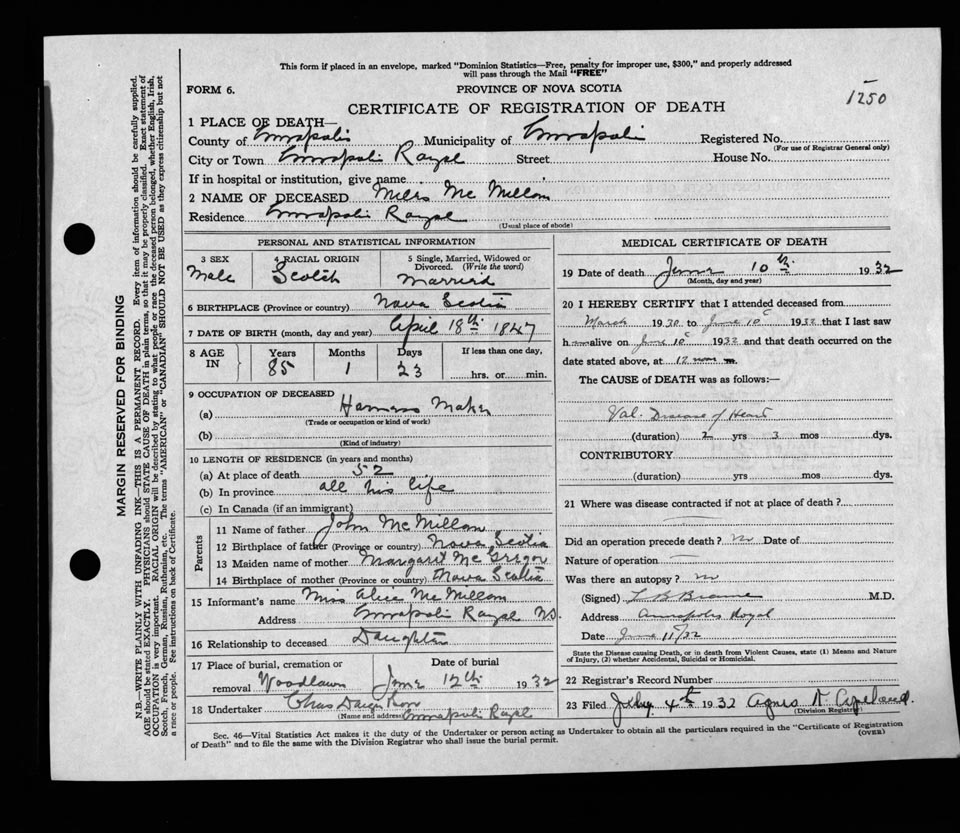 This form if placed in an envelope, marked "Dominion Statistics—Free, penalty for improper use, $300," and properly addressed
will pass through the Mail "FREE"
FORM 6.
PROVINCE OF NOVA SCOTIA
1250
CERTIFICATE OF REGISTRATION OF DEATH
1 PLACE OF DEATH—
County of Annapolis Municipality of Annapolis Registered No.
(For use of Registrar General only)
City or Town Annapolis Royal Street House No.
If in hospital or institution, give name
2 NAME OF DECEASED Miles Mc Millan
Residence Annapolis Royal
(Usual place of abode)
PERSONAL AND STATISTICAL INFORMATION
3 SEX
Male
4 RACIAL ORIGIN
Scotch
5 Single, Married, Widowed or
Divorced. (Write the word)
Married
6 BIRTHPLACE (Province or country) Nova Scotia
7 DATE OF BIRTH (month, day and year) April 18th 1847
8 AGE
IN
Years
85
Months
1
Days
23
If less than one day,
hrs. or min.
9 OCCUPATION OF DECEASED
(a) Harness Maker
(Trade or occupation or kind of work)
(b)
(Kind of industry)
10 LENGTH OF RESIDENCE (in years and months)
(a) At place of death 52
(b) In province all his life
(c) In Canada (if an immigrant)
Parents
11 Name of father John Mc Millan
12 Birthplace of father (Province or country) Nova Scotia
13 Maiden name of mother Margaret Mc Gregor
14 Birthplace of mother (Province or country) Nova Scotia
15 Informant's name Miss Alice Mc Millan
Address Annapolis Royal N.S.
16 Relationship to deceased Daughter
17 Place of burial, cremation or
removal Woodlawn
Date of burial
June 12th 1932
18 Undertaker Chas
(Name and address) Annapolis Royal
MEDICAL CERTIFICATE OF DEATH
19 Date of death June 10th 1932
(Month, day and year)
20 I HEREBY CERTIFY that I attended deceased from
March 1930 to June 10 1932 that I last saw
him alive on June 10 1932 and that death occurred on the
date stated above, at 12 noon m.
The CAUSE of DEATH was as follows:—
Val. Disease of Heart
(duration) 2 yrs 3 mos dys.
CONTRIBUTORY
(duration) yrs mos dys.
21 Where was disease contracted if not at place of death?
Did an operation precede death? no Date of
Nature of operation
Was there an autopsy? no
(Signed) L B Braine M.D.
Address Annapolis Royal
Date June 11/32
State the Disease causing Death, or in death from Violent Causes, state (1) Means and Nature
of Injury, (2) whether Accidental, Suicidal or Homicidal.
22 Registrar's Record Number
23 Filed July 4th 1932 Agnes N. Copeland.
(Division Registrar)
Sec. 46—Vital Statistics Act makes it the duty of the Undertaker or person acting as Undertaker to obtain all the particulars required in the "Certificate of Registration
of Death" and to file the same with the Division Registrar who shall issue the burial permit.
(OVER)
MARGIN RESERVED FOR BINDING
N.B.—WRITE PLAINLY WITH UNFADING INK—THIS IS A PERMANENT RECORD. Every item of information should be carefully supplied.
AGE should be stated EXACTLY. PHYSICIANS should STATE CAUSE OF DEATH in plain terms, so that it may be properly classified. Exact statement of
OCCUPATION is very important. RACIAL ORIGIN will be described by stating to what people or race the deceased person belonged, whether English, Irish,
Scotch, French, German, Russian, Ruthenian, etc. The terms "AMERICAN" or "CANADIAN" SHOULD NOT BE USED as they express citizenship but not
a race or people. See instructions on back of Certificate.